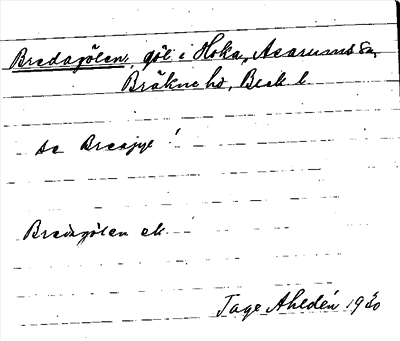 Bredagölen, göl i Hoka, Asarums sn,
Bräkne hd, Blek l.
Bredagölen ek.
Tage Ahldén 1930